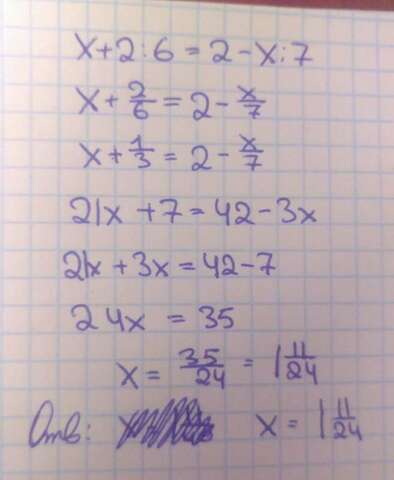 x+2:6=2-x:7
x+2/6=2-x/7
x+1/3=2-x/7
21x+7=42-3x
21x+3x=42-7
24x=35
x=35/24=1 11/24
Отв: x=1 11/24